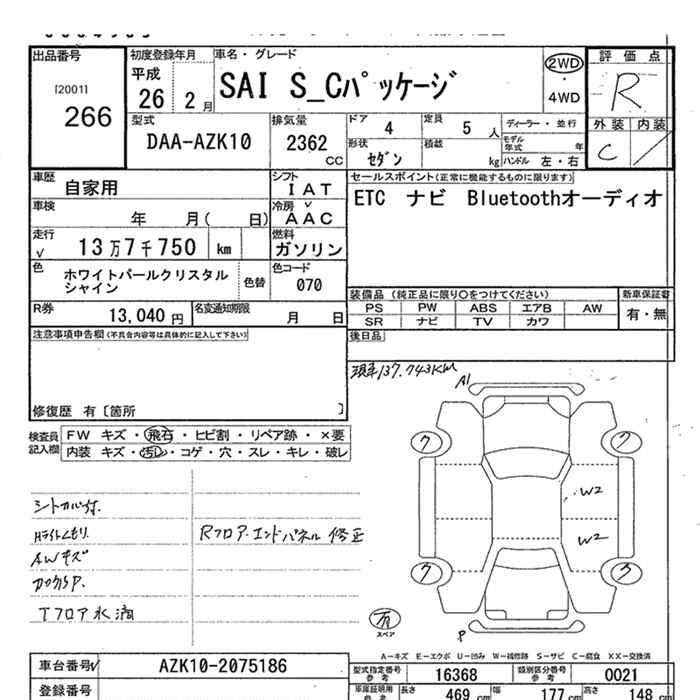 出品番号
[2001]
266
初度登録年月
平成
26 2月
車名・グレード
SAI S_Cパッケージ
2WD
4WD
評価点
R
外装 内装
C
型式
DAA-AZK10
排気量
2362 CC
ドア 4
定員 5 人
形状 セダン
積載 kg
ディーラー・並行
モデル年式 年
ハンドル 左・右
車歴 自家用
車検 年 月( 日)
走行 √ 13万7千750 km
色 ホワイトパールクリスタルシャイン
色替
シフト IAT
冷房 √ AAC
燃料 ガソリン
色コード 070
R券 13,040 円
名変通知期限 月 日
セールスポイント(正常に機能するものに限ります)
ETC ナビ Bluetoothオーディオ
装備品 (純正品に限り○をつけてください)
PS PW ABS エアB AW
SR ナビ TV カワ
新車保証書
有・無
後日品
注意事項申告欄(不具合内容等は具体的に記入して下さい)
修復歴 有〔箇所 〕
現車137.743KM
検査員記入欄
FW キズ・飛石・ヒビ割・リペア跡・×要
内装 キズ・汚レ・コゲ・穴・スレ・キレ・破レ
A1
ワ ワ
W2
W2
ワ ワ
Hライトくもり.
AWキズ
Tフロア水滴
Rフロア.エンドパネル修正
有
スペア
P
A―キズ E―エクボ U―凹み W―補修跡 S―サビ C―腐食 XX―交換済
車台番号 √ AZK10-2075186
登録番号
型式指定番号 参考 16368
類別区分番号 参考 0021
車庫証明用 参考
長さ 469 cm 幅 177 cm 高さ 148 cm